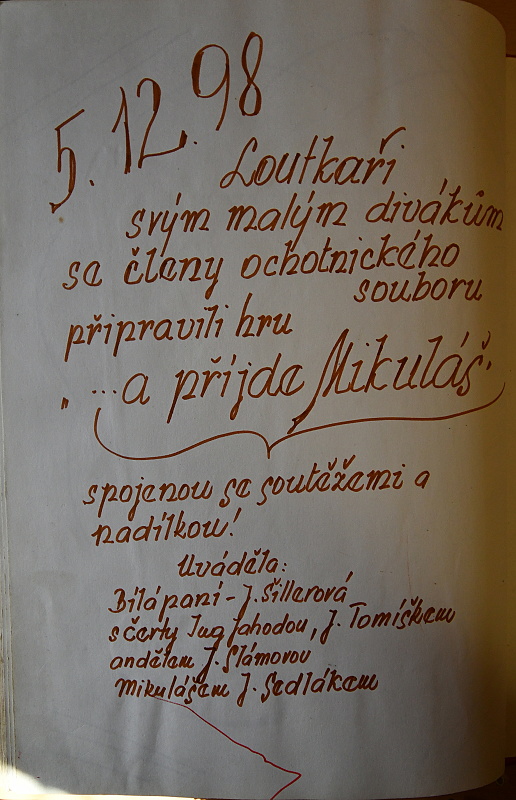 5. 12. 98
Loutkaři
svým malým divákům
se členy ochotnického
souboru
připravili hru
" ...a příjde Mikuláš"
spojenou se soutěžemi a
nadílkou!
Uváděla:
Bílá paní - J. Šillerová
s čerty Jahodou, J. Tomíškem
andělem J. Slámovou
Mikulášem J. Sedlákem